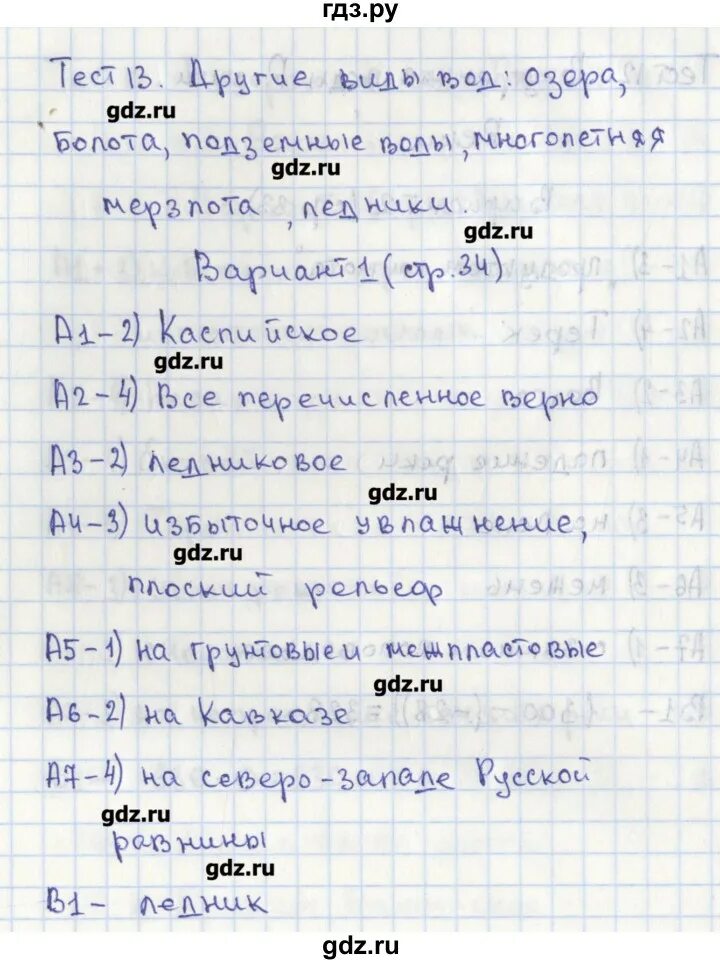 гдз.ру
Тест 13. Другие виды вод: озера,
gdz.ru
болота, подземные воды, многолетняя
gdz.ru
мерзлота, ледники.
gdz.ru
Вариант 1 (стр.34)
А1-2) Каспийское
gdz.ru
А2-4) Все перечисленное верно
А3-2) ледниковое
gdz.ru
А4-3) избыточное увлажнение,
gdz.ru
плоский рельеф
А5-1) на грунтовые и межпластовые
gdz.ru
А6-2) на Кавказе
А7-4) на северо-западе Русской
gdz.ru
равнины
gdz.ru
В1- ледник
gdz.ru